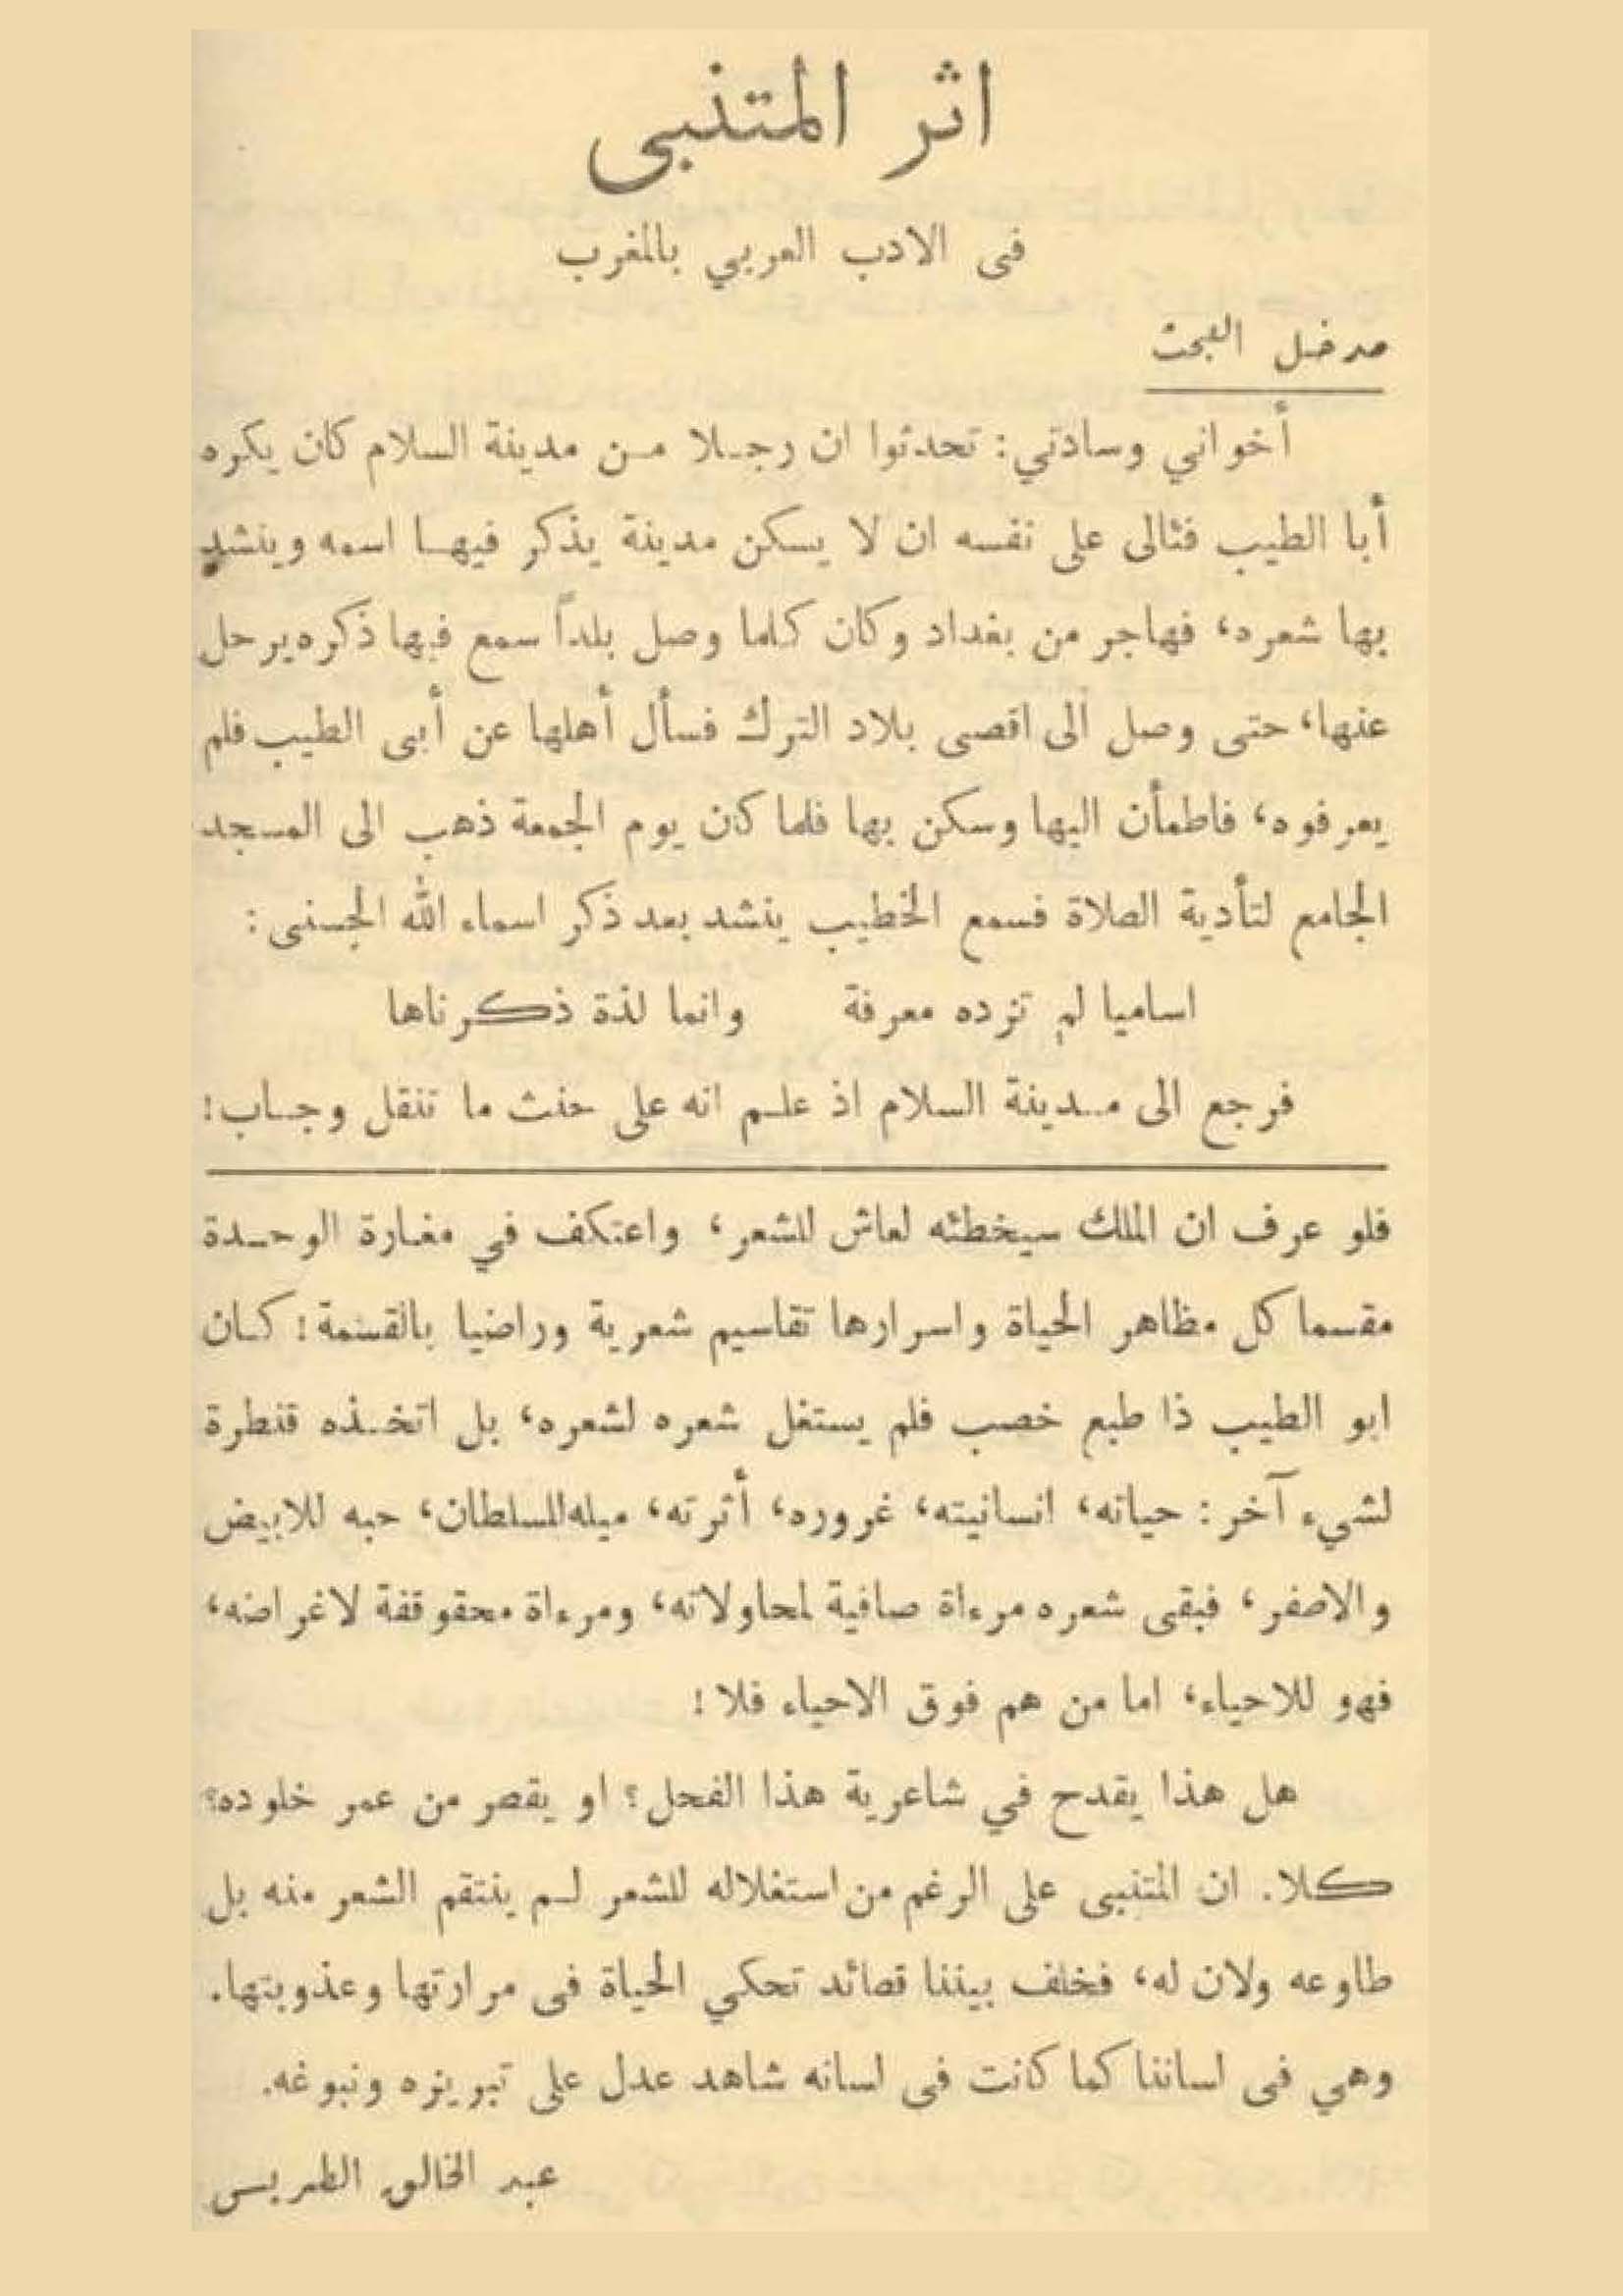 اثر المتنبى
فى الادب العربي بالمغرب
مدخل البحث
أخواني وسادتي: تحدثوا ان رجلا من مدينة السلام كان يكره
أبا الطيب فئالى على نفسه ان لا يسكن مدينة يذكر فيها اسمه وينشد
بها شعره، فهاجر من بغداد وكان كلما وصل بلداً سمع فيها ذكره يرحل
عنها، حتى وصل الى اقصى بلاد الترك فسأل أهلها عن أبى الطيب فلم
يعرفوه، فاطمأن اليها وسكن بها فلما كان يوم الجمعة ذهب الى المسجد
الجامع لتأدية الصلاة فسمع الخطيب ينشد بعد ذكر اسماء الله الحسنى:
اساميا لم تزده معرفة وانما لذة ذكرناها
فرجع الى مدينة السلام اذ علم انه على حنث ما تنقل وجاب!
فلو عرف ان الملك سيخطئه لعاش للشعر، واعتكف في مغارة الوحدة
مقسما كل مظاهر الحياة واسرارها تقاسيم شعرية وراضيا بالقسمة! كان
ابو الطيب ذا طبع خصب فلم يستغل شعره لشعره، بل اتخذه قنطرة
لشيء آخر: حياته، انسانيته، غروره، أثرته، ميله للسلطان، حبه للابيض
والاصفر، فبقى شعره مرءاة صافية لمحاولاته، ومرءاة محقوقفة لاغراضه،
فهو للاحياء، اما من هم فوق الاحياء فلا!
هل هذا يقدح في شاعرية هذا الفحل؟ او يقصر من عمر خلوده؟
كلا. ان المتنبى على الرغم من استغلاله للشعر لم ينتقم الشعر منه بل
طاوعه ولان له، فخلف بيننا قصائد تحكي الحياة فى مرارتها وعذوبتها.
وهي فى لساننا كما كانت فى لسانه شاهد عدل على تبريزه ونبوغه.
عبد الخالق الطريس